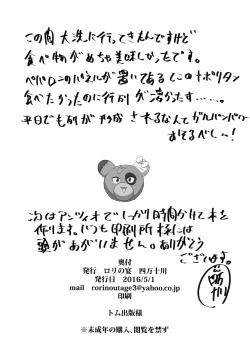 この間大洗に行ってきたんですけど
食べ物がめちゃ美味しかったです。
ペパロニのパネルが置いてあるとこのナポリタン
食べたかったのに行列が凄かったす……。
平日でも列が形成されるなんてガルパンパワー
おそるべしー!
次はアンツィオでしっかり時間かけて本を
作ります。いつも印刷所様には
頭があがいません。ありがとう
ございます。
四万十川
奥付
発行 ロリの宴 四万十川
発行日 2016/5/1
mail rorinoutage3@yahoo.co.jp
印刷
トム出版様
※未成年の購入、閲覧を禁ず